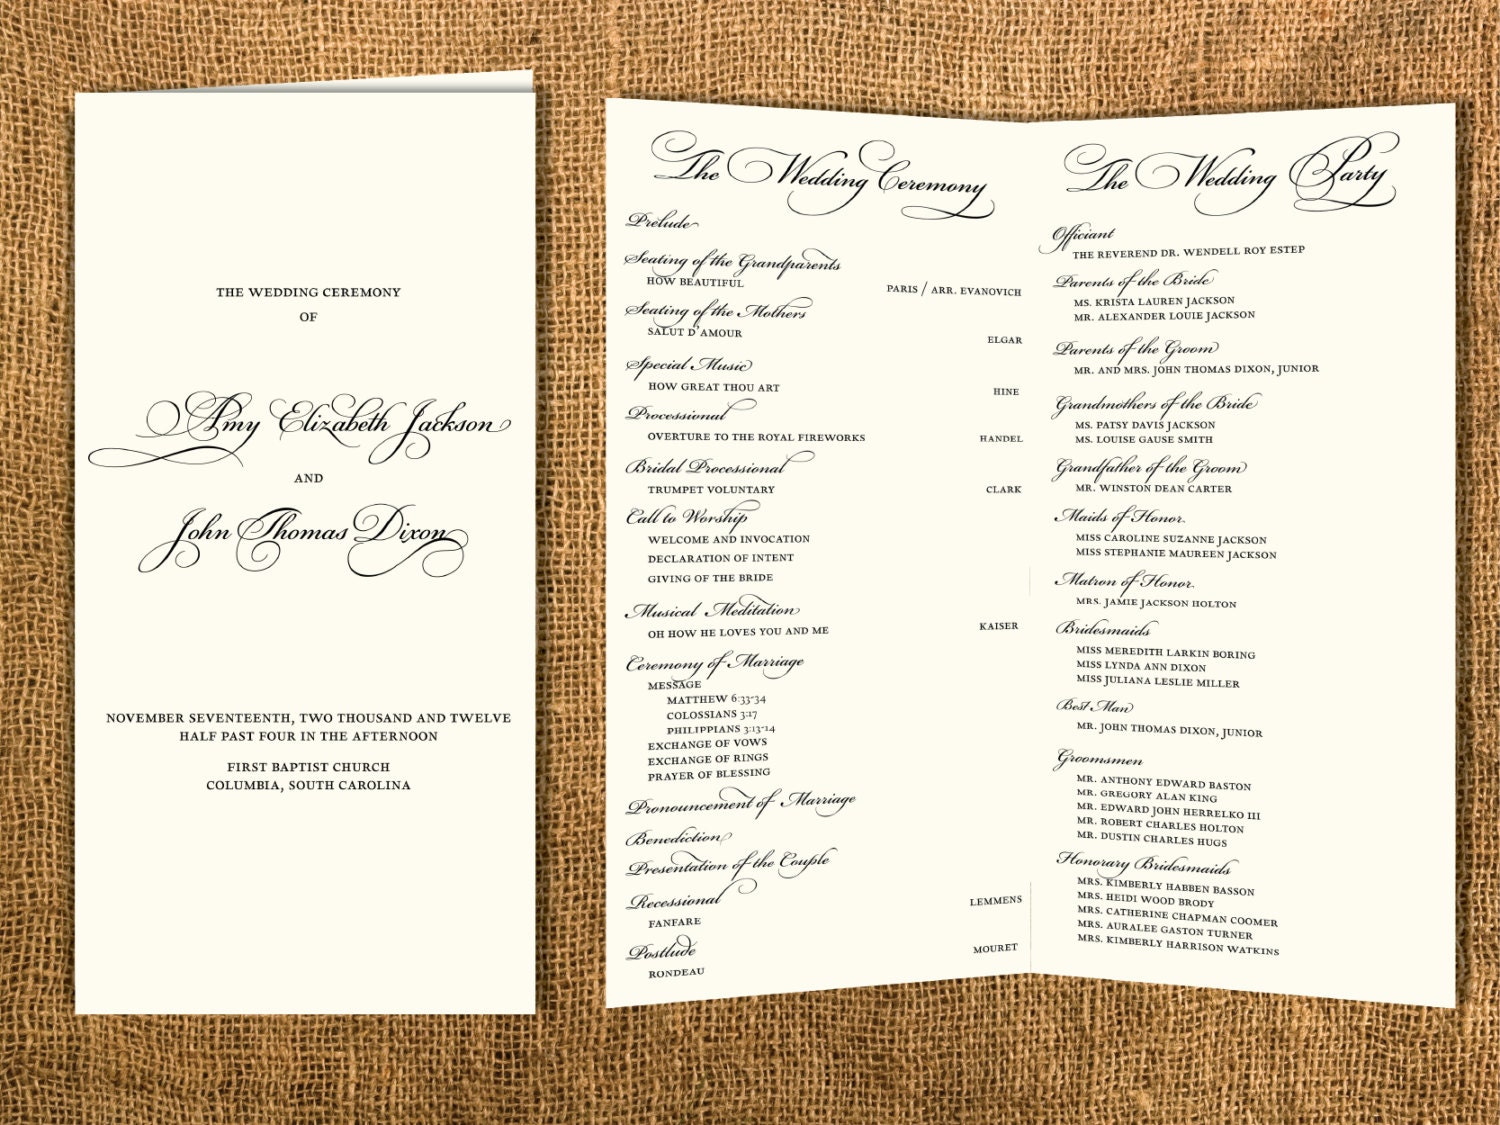 THE WEDDING CEREMONY
OF
Amy Elizabeth Jackson
AND
John Thomas Dixon
NOVEMBER SEVENTEENTH, TWO THOUSAND AND TWELVE
HALF PAST FOUR IN THE AFTERNOON
FIRST BAPTIST CHURCH
COLUMBIA, SOUTH CAROLINA
The Wedding Ceremony
Prelude
Seating of the Grandparents
HOW BEAUTIFUL PARIS / ARR. EVANOVICH
Seating of the Mothers
SALUT D'AMOUR ELGAR
Special Music
HOW GREAT THOU ART HINE
Processional
OVERTURE TO THE ROYAL FIREWORKS HANDEL
Bridal Processional
TRUMPET VOLUNTARY CLARK
Call to Worship
WELCOME AND INVOCATION
DECLARATION OF INTENT
GIVING OF THE BRIDE
Musical Meditation
OH HOW HE LOVES YOU AND ME KAISER
Ceremony of Marriage
MESSAGE
MATTHEW 6:33-34
COLOSSIANS 3:17
PHILIPPIANS 3:13-14
EXCHANGE OF VOWS
EXCHANGE OF RINGS
PRAYER OF BLESSING
Pronouncement of Marriage
Benediction
Presentation of the Couple
Recessional
FANFARE LEMMENS
Postlude
RONDEAU MOURET
The Wedding Party
Officiant
THE REVEREND DR. WENDELL ROY ESTEP
Parents of the Bride
MS. KRISTA LAUREN JACKSON
MR. ALEXANDER LOUIE JACKSON
Parents of the Groom
MR. AND MRS. JOHN THOMAS DIXON, JUNIOR
Grandmothers of the Bride
MS. PATSY DAVIS JACKSON
MS. LOUISE GAUSE SMITH
Grandfather of the Groom
MR. WINSTON DEAN CARTER
Maids of Honor
MISS CAROLINE SUZANNE JACKSON
MISS STEPHANIE MAUREEN JACKSON
Matron of Honor
MRS. JAMIE JACKSON HOLTON
Bridesmaids
MISS MEREDITH LARKIN BORING
MISS LYNDA ANN DIXON
MISS JULIANA LESLIE MILLER
Best Man
MR. JOHN THOMAS DIXON, JUNIOR
Groomsmen
MR. ANTHONY EDWARD BASTON
MR. GREGORY ALAN KING
MR. EDWARD JOHN HERRELKO III
MR. ROBERT CHARLES HOLTON
MR. DUSTIN CHARLES HUGS
Honorary Bridesmaids
MRS. KIMBERLY HABBEN BASSON
MRS. HEIDI WOOD BRODY
MRS. CATHERINE CHAPMAN COOMER
MRS. AURALEE GASTON TURNER
MRS. KIMBERLY HARRISON WATKINS